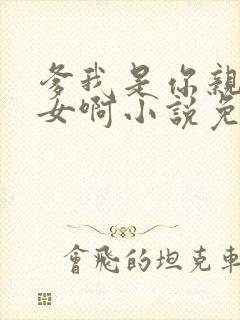 爹我是你親
女啊小說免
會飛的坦克車